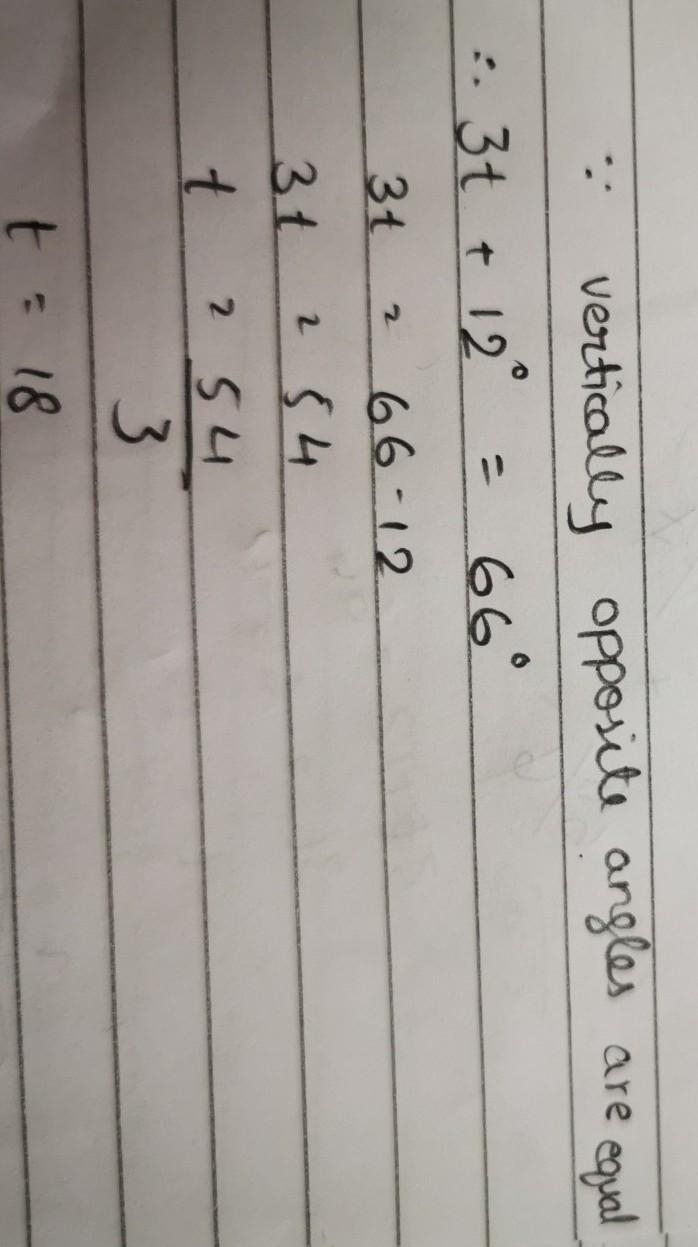 ∵ vertically opposite angles are equal
∴ 3t + 12° = 66°
3t = 66-12
3t = 54
t = 54
3
t = 18